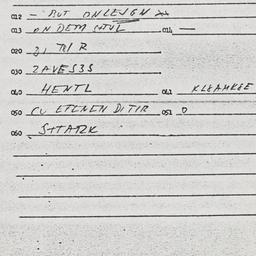 012 - PUT ONLEJGN
013 ON DEM STUL 014 —
020 31 TEJ R
030 ZAVES3S
040 HENTL 041 KLEAMKEE
050 CU EFENEN DI TIR 051 0
060 SHTARK